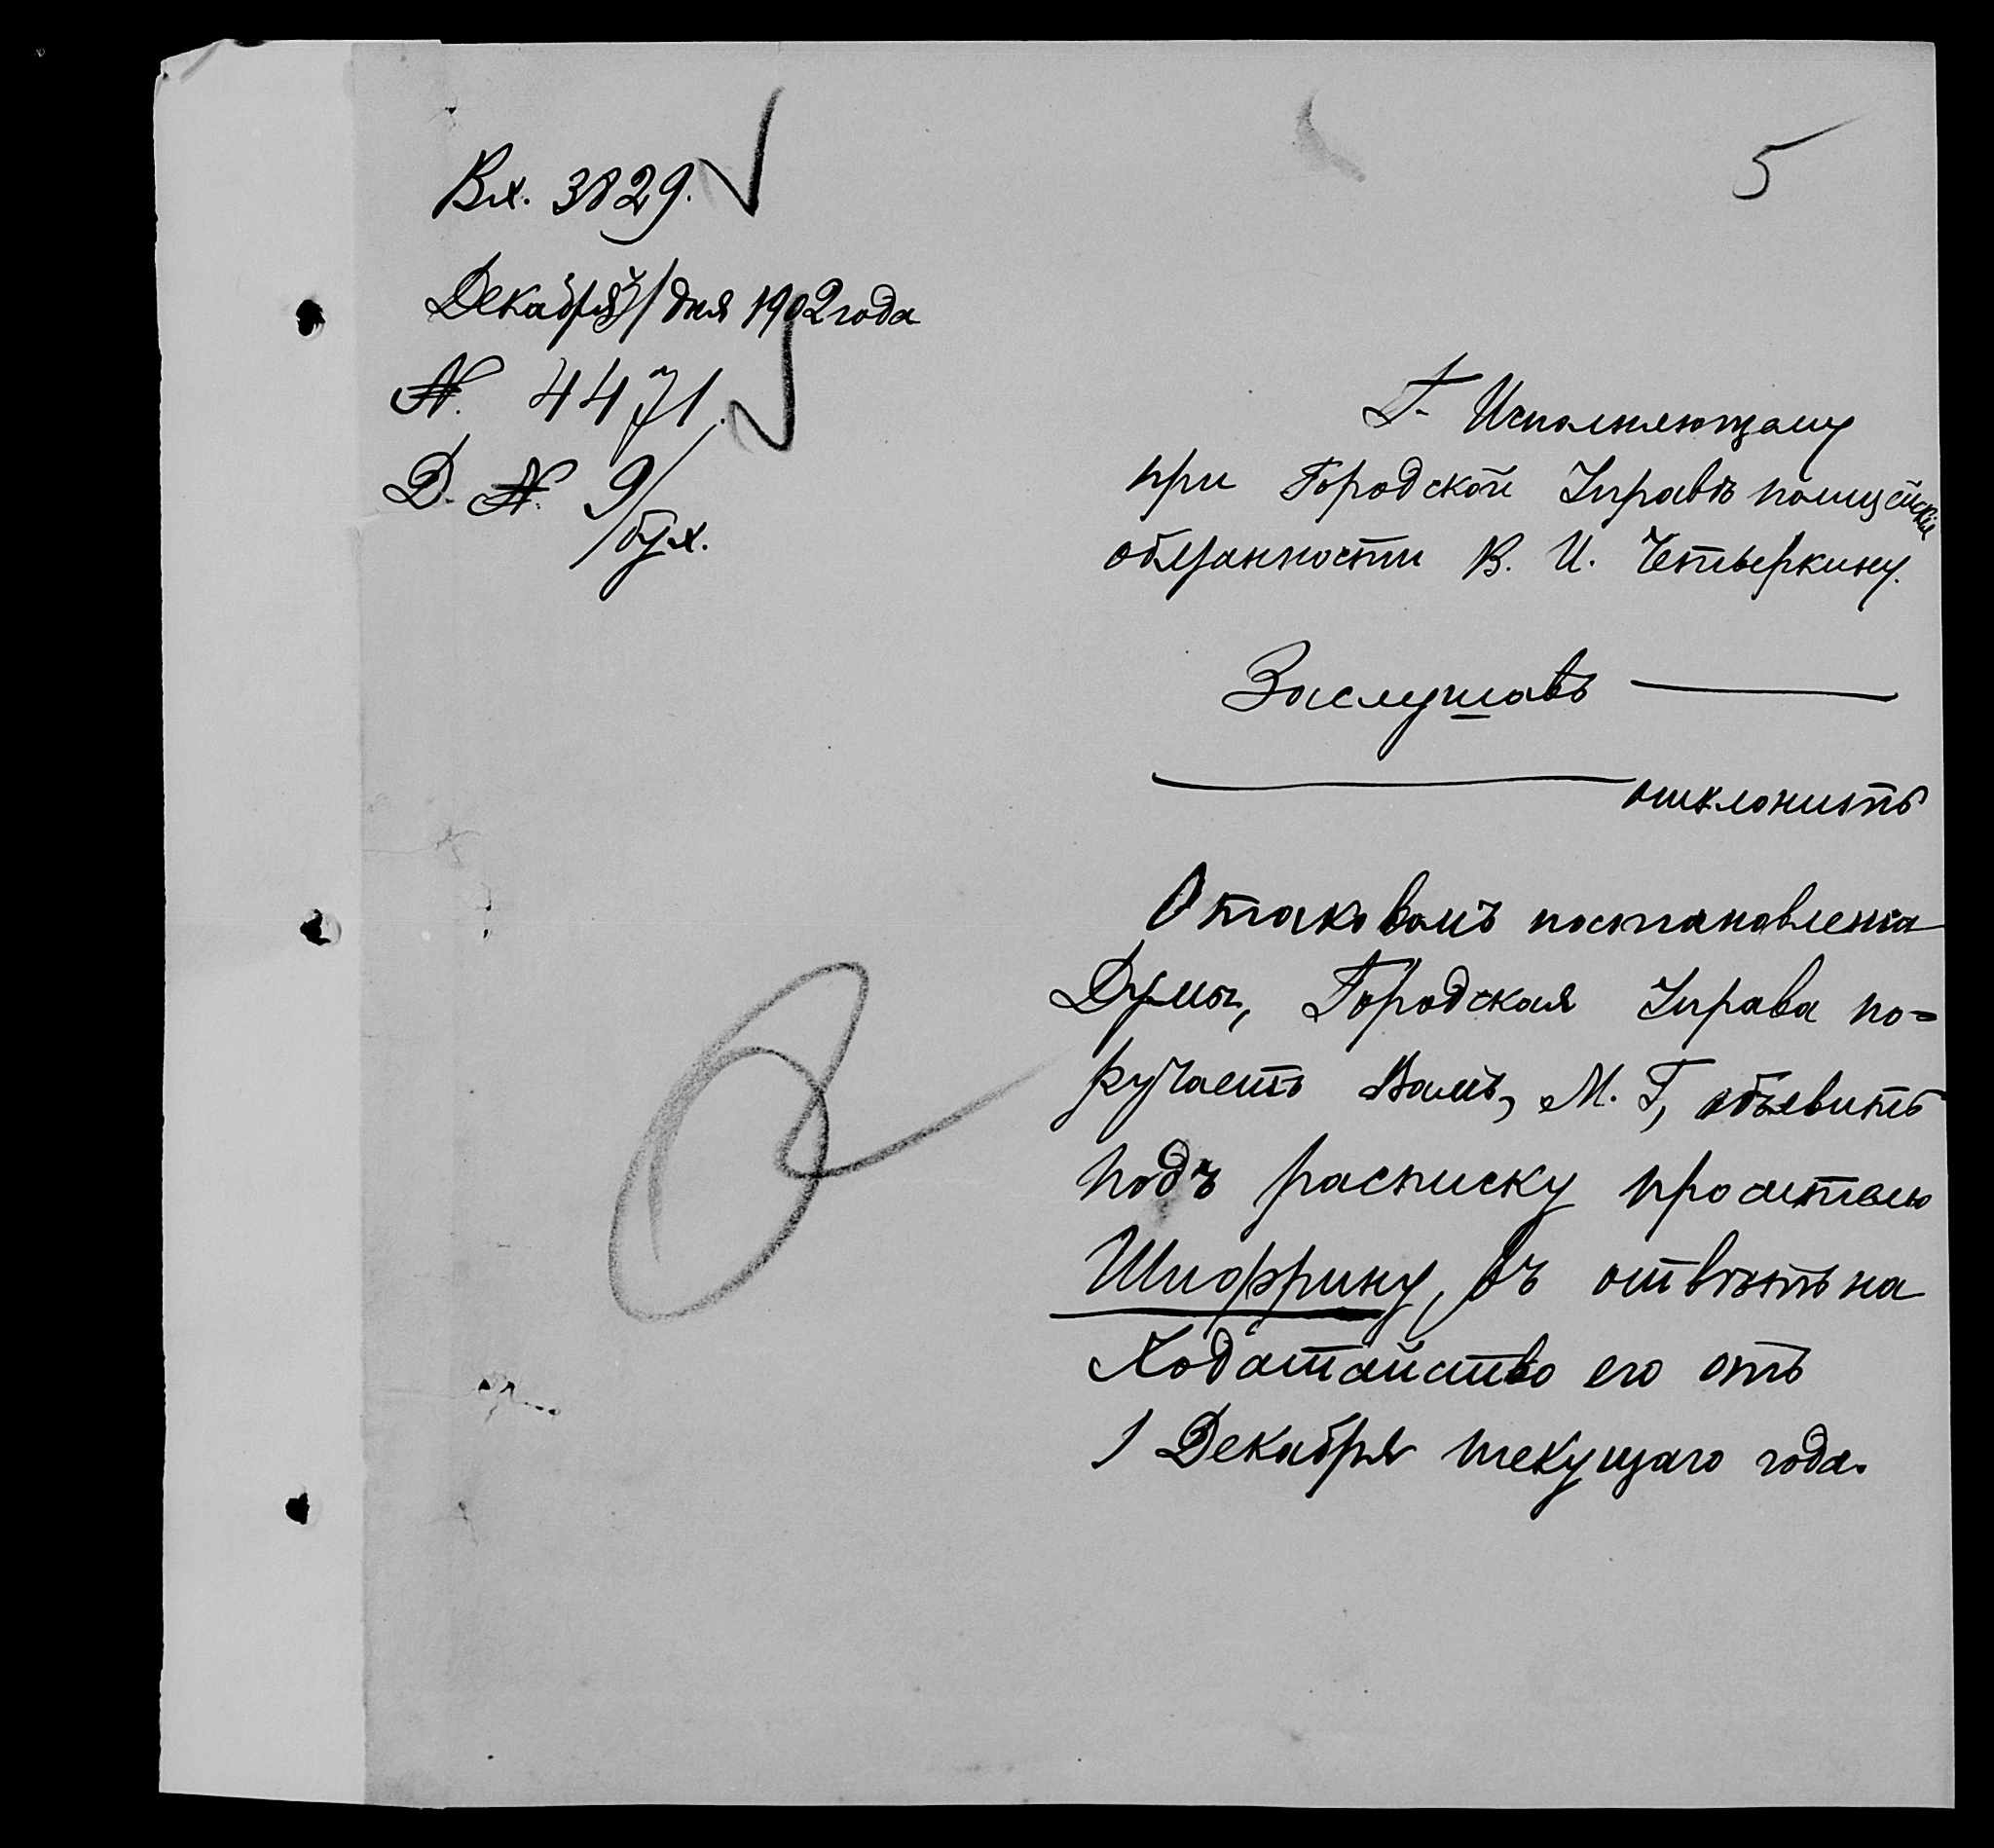 5
Вх. 3829.
Декабря 31 дня 1902 года
№ 4471.
Д. № 9/бух.
Г. Исполняющему
при Городской Управѣ полицейскія
обязанности В. И. Четверкину.
Заслушавъ ———
——— отклонить
О таковомъ постановленіи
Думы, Городская Управа по-
ручаетъ Вамъ, М. Г., объявить
подъ расписку просителю
Шифрину, въ отвѣтъ на
ходатайство его отъ
1 Декабря текущаго года.